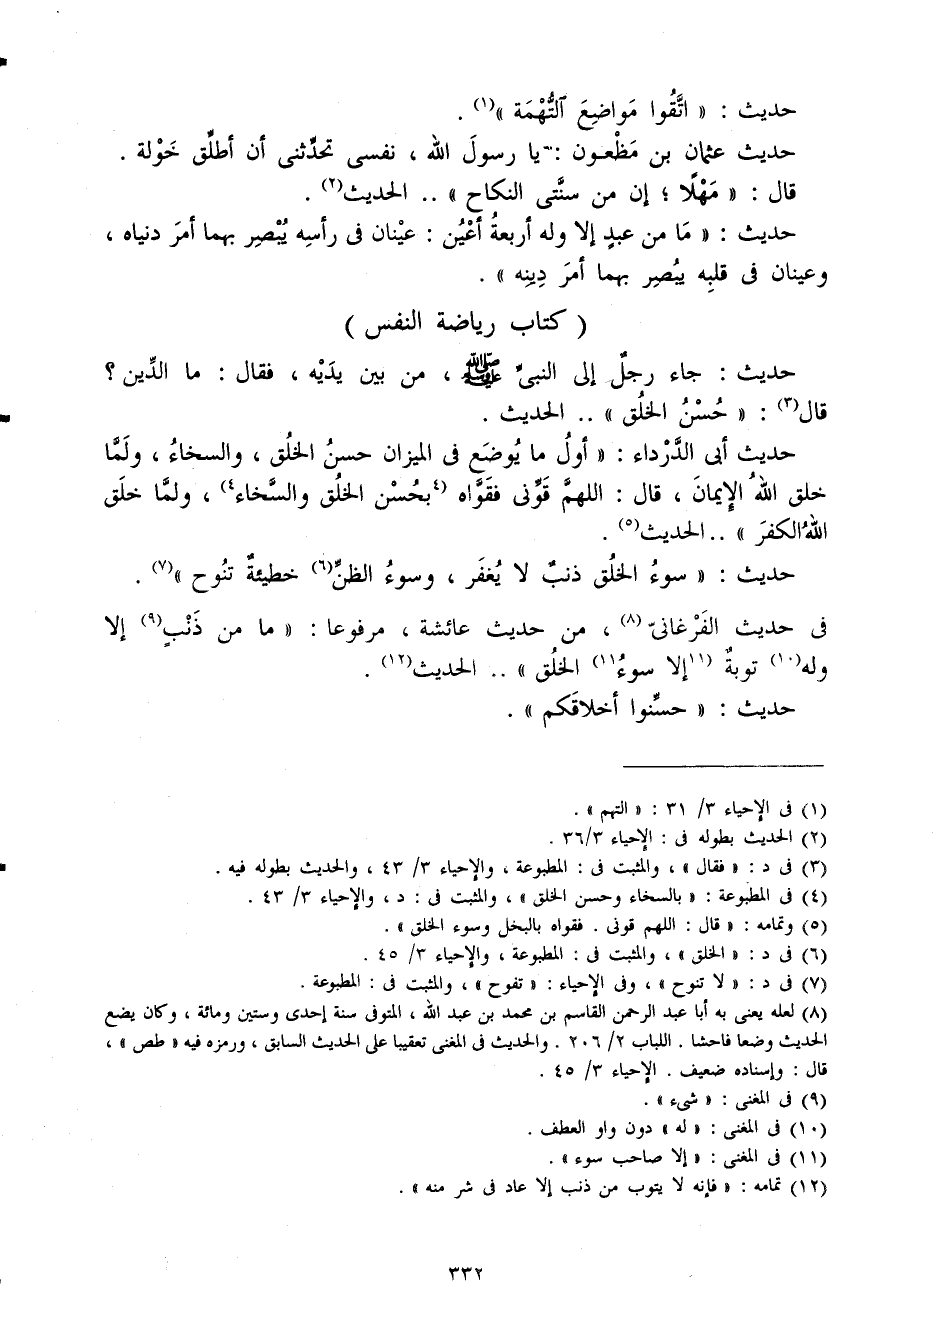 حديث : « اتَّقُوا مَواضِعَ ٱلتُّهْمَة »(١) .
حديث عثمان بن مَظْعـون : يا رسولَ الله ، نفسى تحدِّثنى أن أطلِّق خَوْلة .
قال : « مَهْلًا ؛ إن من سنَّتى النكاح » .. الحديث(٢) .
حديث : « مَا من عبدٍ إلا وله أربعةُ أعْيُن : عيْنان فى رأسِه يُبْصِر بهما أمرَ دنياه ،
وعينان فى قلبِه يبُصِر بهما أمرَ دِينِه » .
( كتاب رياضة النفس )
حديث : جاء رجلٌ إلى النبىِّ ﷺ ، من بين يدَيْه ، فقال : ما الدِّين ؟
قال(٣) : « حُسْنُ الخلُق » .. الحديث .
حديث أبى الدَّرْداء : « أولُ ما يُوضَع فى الميزان حسنُ الخلُق ، والسخاءُ ، ولَمَّا
خلق اللهُ الإِيمانَ ، قال : اللهمَّ قَوِّنى فقَوَّاه (٤بحُسْن الخلُق والسَّخاء٤) ، ولمَّا خلَق
اللهُ الكفرَ » .. الحديث(٥) .
حديث : « سوءُ الخلُق ذنبٌ لا يُغفَر ، وسوءُ الظنِّ(٦) خطيئةٌ تنُوح »(٧) .
فى حديث الفَرْغانىّ(٨) ، من حديث عائشة ، مرفوعا : « ما من ذَنْبٍ(٩) إلا
وله(١٠) توبةٌ (١١إلا سوءُ١١) الخلُق » .. الحديث(١٢) .
حديث : « حسِّنوا أخلاقَكم » .
(١) فى الإحياء ٣/ ٣١ : « التهم » .
(٢) الحديث بطوله فى : الإحياء ٣/ ٣٦ .
(٣) فى د : « فقال » ، والمثبت فى : المطبوعة ، والإحياء ٣/ ٤٣ ، والحديث بطوله فيه .
(٤) فى المطبوعة : « بالسخاء وحسن الخلق » ، والمثبت فى : د ، والإحياء ٣/ ٤٣ .
(٥) وتمامه : « قال : اللهم قونى . فقواه بالبخل وسوء الخلق » .
(٦) فى د : « الخلق » ، والمثبت فى : المطبوعة ، والإحياء ٣/ ٤٥ .
(٧) فى د : « لا تنوح » ، وفى الإحياء : « تفوح » ، والمثبت فى : المطبوعة .
(٨) لعله يعنى به أبا عبد الرحمن القاسم بن محمد بن عبد الله ، المتوفى سنة إحدى وستين ومائة ، وكان يضع
الحديث وضعا فاحشا . اللباب ٢/ ٢٠٦ . والحديث فى المغنى تعقيبا على الحديث السابق ، ورمزه فيه « طص » ،
قال : وإسناده ضعيف . الإحياء ٣/ ٤٥ .
(٩) فى المغنى : « شىء » .
(١٠) فى المغنى : « له » دون واو العطف .
(١١) فى المغنى : « إلا صاحب سوء » .
(١٢) تمامه : « فإنه لا يتوب من ذنب إلا عاد فى شر منه » .
٣٣٢